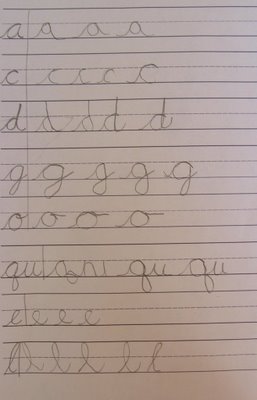 a a a a
c c c c c
d d d d d
g g g g g
o o o o
qu qu qu
e e e e
l l l l l